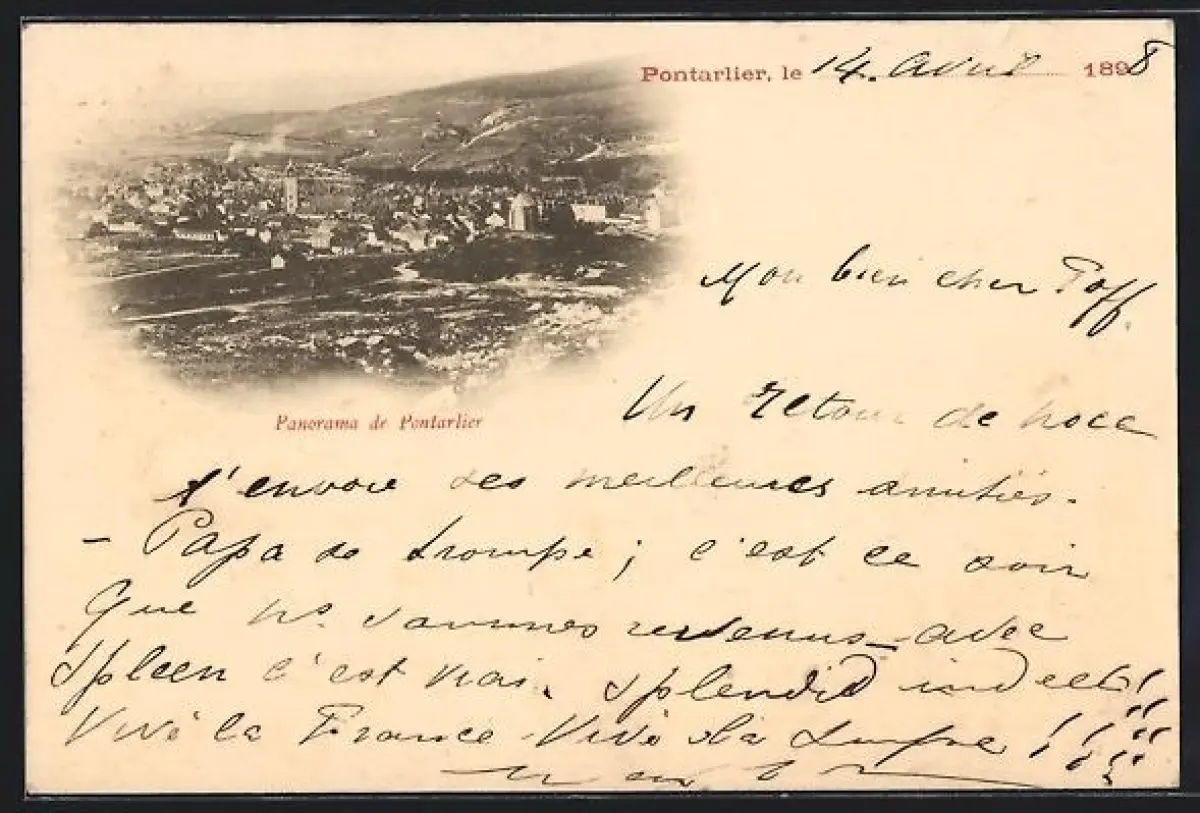 Pontarlier, le 14. Avril 1898
Mon bien cher Poff.
Panorama de Pontarlier
Un retour de noce
t'envoie ses meilleures amitiés.
- Papa se trompe; c'est ce soir
Que ns. sommes revenus avec
spleen c'est vrai. splendid indeed!!!
Vive la France Vive la !!!